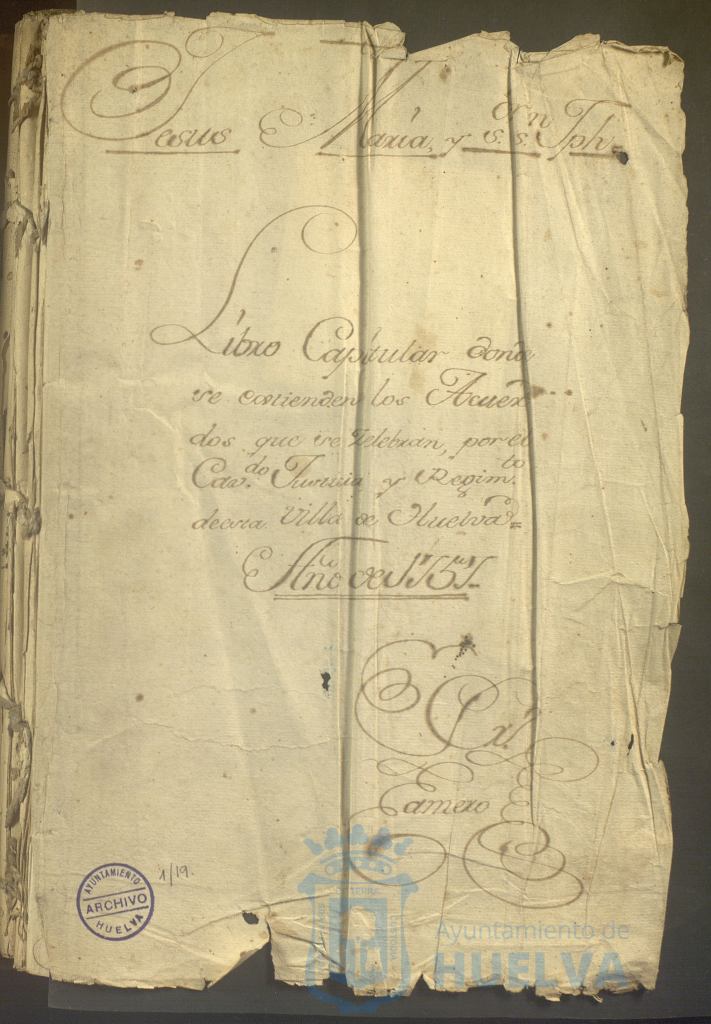 Jesus Maria, y S.S.ᵒʳⁿ Jph.
Libro Capitular donde
se estienden los Acuer
dos que se Zelebran, por el
Cav.do Justicia y Regim.to
de esta Villa de Huelva =
Año de 1751
Gamero
AYUNTAMIENTO
ARCHIVO
HUELVA
1/19.
Ayuntamiento de
HUELVA